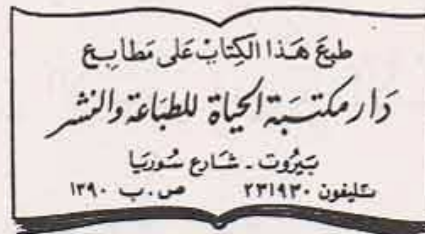 طبع هَذا الكِتابْ عَلى مَطابِع
دَار مكتبَة الحيَاة للطبَاعَة وَالنشر
بَيرُوت - شَارع سُوريَا
تليفون ٢٣١٩٣٠ ص.ب ١٣٩٠